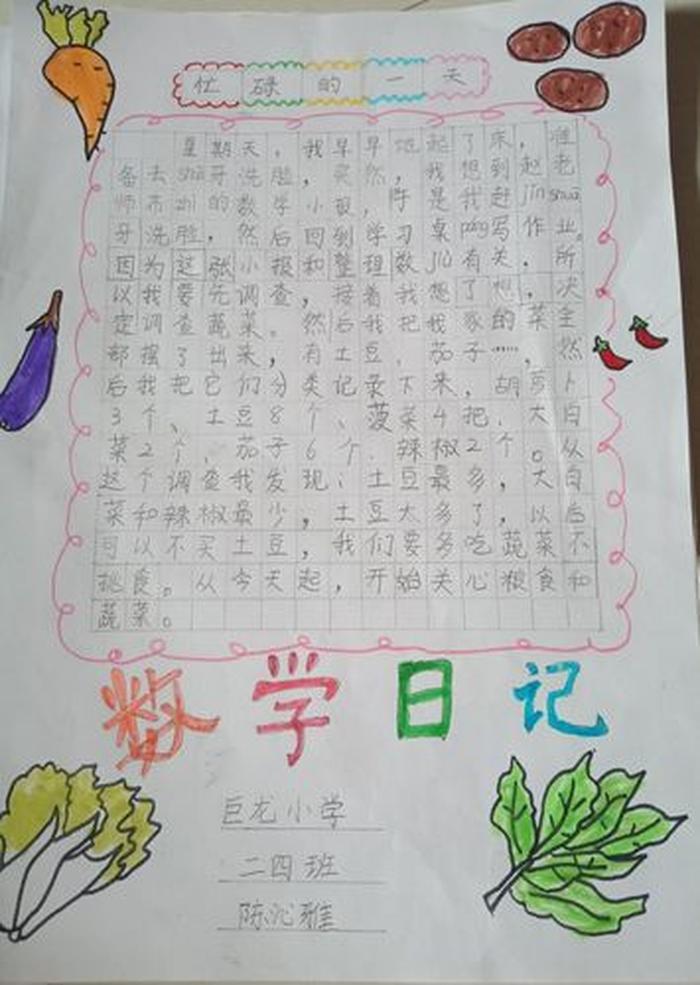 忙碌的一天
星期天,我早早地起了床,准
备去shuā牙洗脸,突然,我想到赵老
师布zhì的数学小报,于是我赶jǐnshuā
牙洗脸,然后回到学习桌páng写作业。
因为这张小报和整理数jù有关,所
以我要先调查,接着我想了想,决
定调查蔬菜。然后我把我家的菜全
部摆了出来,有土豆、茄子……,然
后我把它们分类记录下来,胡萝卜
3个、土豆8个、菠菜4把、大白
菜2个、茄子6个、辣椒2个。从
这个调查我发现:土豆最多,大白
菜和辣椒最少,土豆太多了,以后
可以不买土豆,我们要多吃蔬菜不
挑食。从今天起,开始关心粮食和
蔬菜。
数学日记
巨龙小学
二四班
陈沁雅